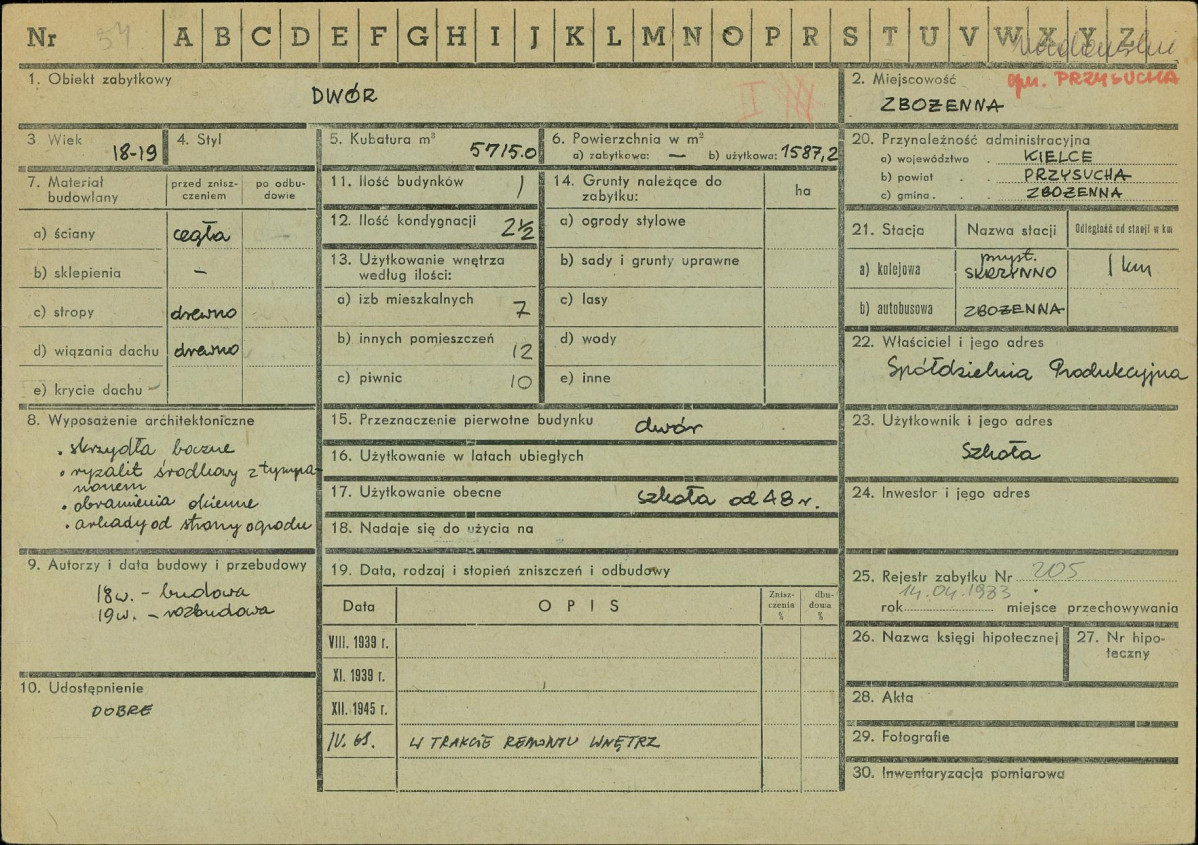 Nr 54 A B C D E F G H I J K L M N O P R S T U V W X Y Z
1. Obiekt zabytkowy
DWÓR
2. Miejscowość
gm. PRZYSUCHA
ZBOŻENNA
3 Wiek
18-19
4. Styl
5. Kubatura m³
5715.0
6. Powierzchnia w m²
a) zabytkowa: — b) użytkowa: 1587,2
20. Przynależność administracyjna
a) województwo . KIELCE
b) powiat . . PRZYSUCHA
c) gmina . . . ZBOŻENNA
7. Materiał budowlany
przed zniszczeniem
po odbudowie
a) ściany cegła
b) sklepienia –
c) stropy drewno
d) wiązania dachu drewno
e) krycie dachu –
11. Ilość budynków 1
12. Ilość kondygnacji 2½
13. Użytkowanie wnętrza
według ilości:
a) izb mieszkalnych 7
b) innych pomieszczeń 12
c) piwnic 10
14. Grunty należące do
zabytku:
ha
a) ogrody stylowe
b) sady i grunty uprawne
c) lasy
d) wody
e) inne
21. Stacja Nazwa stacji Odległość od stacji w km
a) kolejowa przyst. SKRZYNNO 1 km
b) autobusowa ZBOŻENNA
22. Właściciel i jego adres
Spółdzielnia Produkcyjna
8. Wyposażenie architektoniczne
• skrzydła boczne
• ryzalit środkowy z tympa-
nonem
• obramienia okienne
• arkady od strony ogrodu
15. Przeznaczenie pierwotne budynku dwór
16. Użytkowanie w latach ubiegłych
17. Użytkowanie obecne szkoła od 48 r.
18. Nadaje się do użycia na
23. Użytkownik i jego adres
Szkoła
24. Inwestor i jego adres
9. Autorzy i data budowy i przebudowy
18 w. – budowa
19 w. – rozbudowa
10. Udostępnienie
DOBRE
19. Data, rodzaj i stopień zniszczeń i odbudowy
Data OPIS Zniszczenia % dbudowa %
VIII. 1939 r.
XI. 1939 r.
XII. 1945 r.
W TRAKCIE REMONTU WNĘTRZ
25. Rejestr zabytku Nr 205
14.04.1983
rok miejsce przechowywania
26. Nazwa księgi hipotecznej
27. Nr hipo-
teczny
28. Akta
29. Fotografie
30. Inwentaryzacja pomiarowa